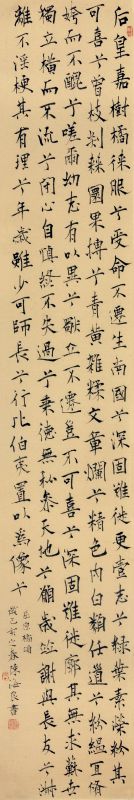 后皇嘉樹橘徠服兮受命不遷生南國兮深固難徙更壹志兮綠葉素榮紛其
可喜兮曾枝剡棘圓果摶兮青黃雜糅文章爛兮精色內白類任道兮紛緼宜
姱而不醜兮嗟爾幼志有以異兮獨立不遷豈不可喜兮深固難徙廓其無求兮蘇世
獨立橫而不流兮閉心自慎終不失過兮秉德無私參天地兮願歲並謝與長友兮淑
離不淫梗其有理兮年歲雖少可師長兮行比伯夷置以為像兮
屈原橘頌
陳海良書